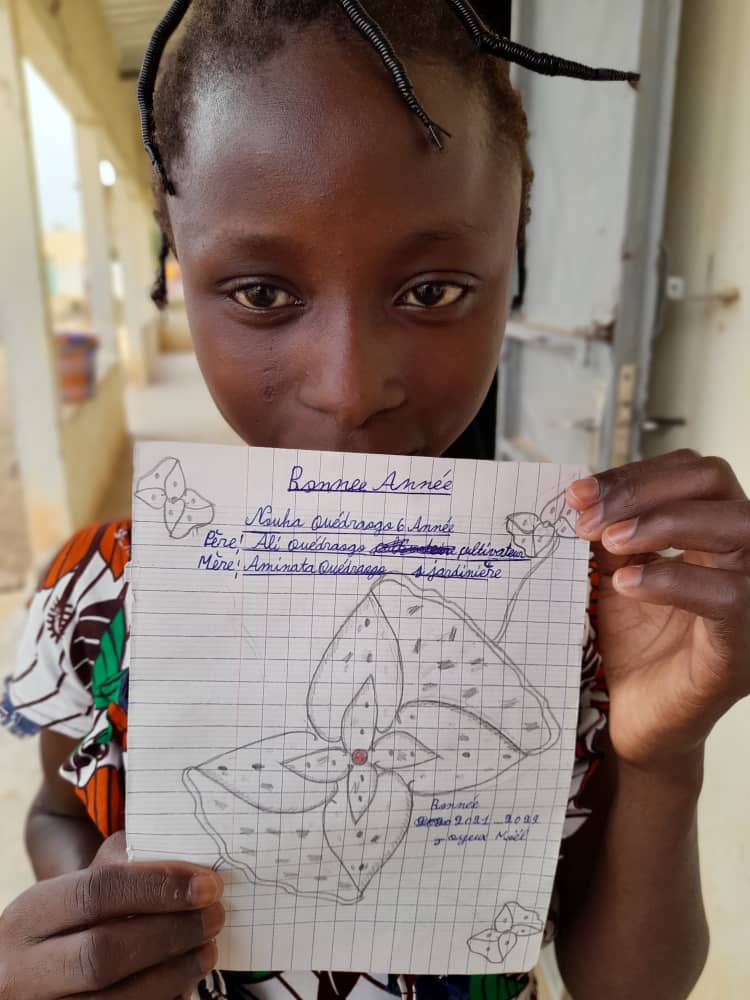 Bonnee Année
Nouha Ouédraogo 6 Année
Père: Ali Ouédraogo cultivateur
Mère: Aminata Ouédraogo jardinière
Bonnée
2021_2022
Joyeux Noël